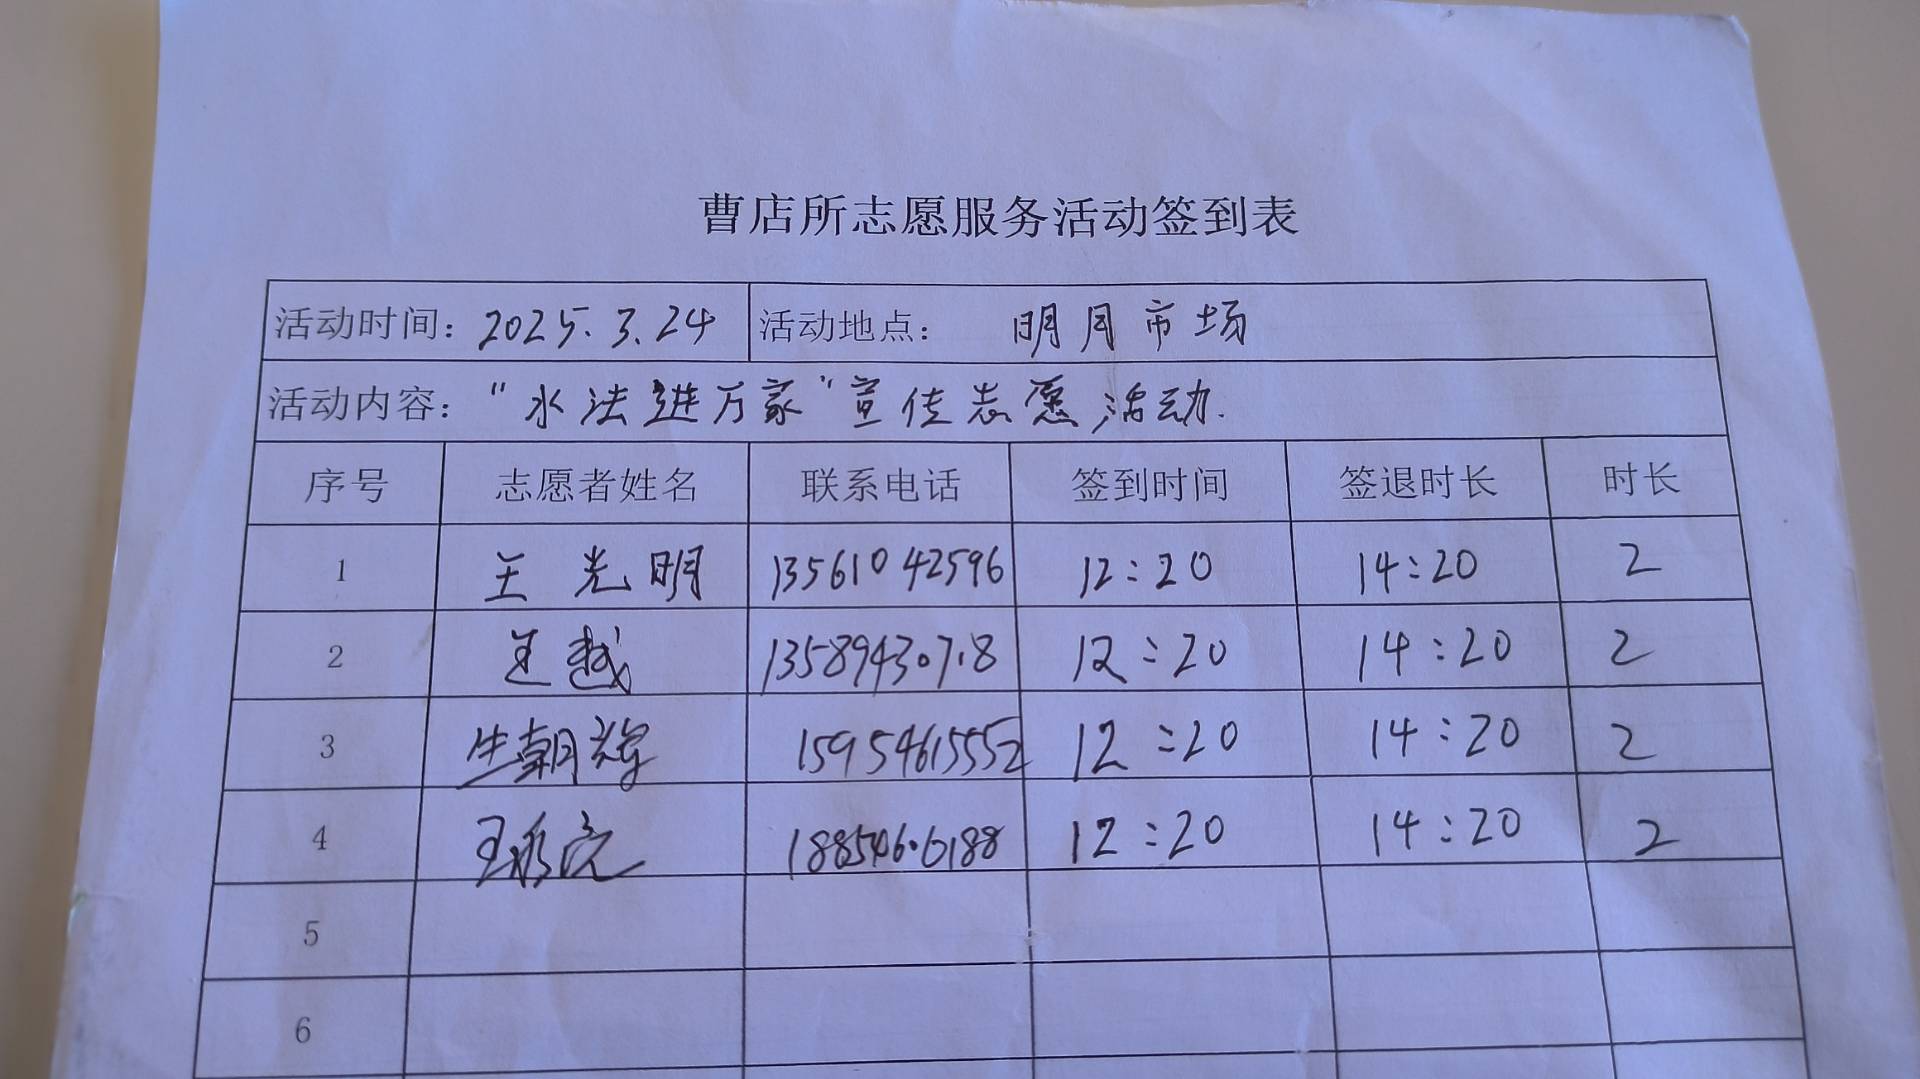 曹店所志愿服务活动签到表
活动时间: 2025.3.24 活动地点: 明月市场
活动内容: "水法进万家"宣传志愿活动.
序号 志愿者姓名 联系电话 签到时间 签退时长 时长
1 王光明 13561042596 12:20 14:20 2
2 王越 13589430718 12:20 14:20 2
3 生朝辉 15954615552 12:20 14:20 2
4 18854606188 12:20 14:20 2
5
6